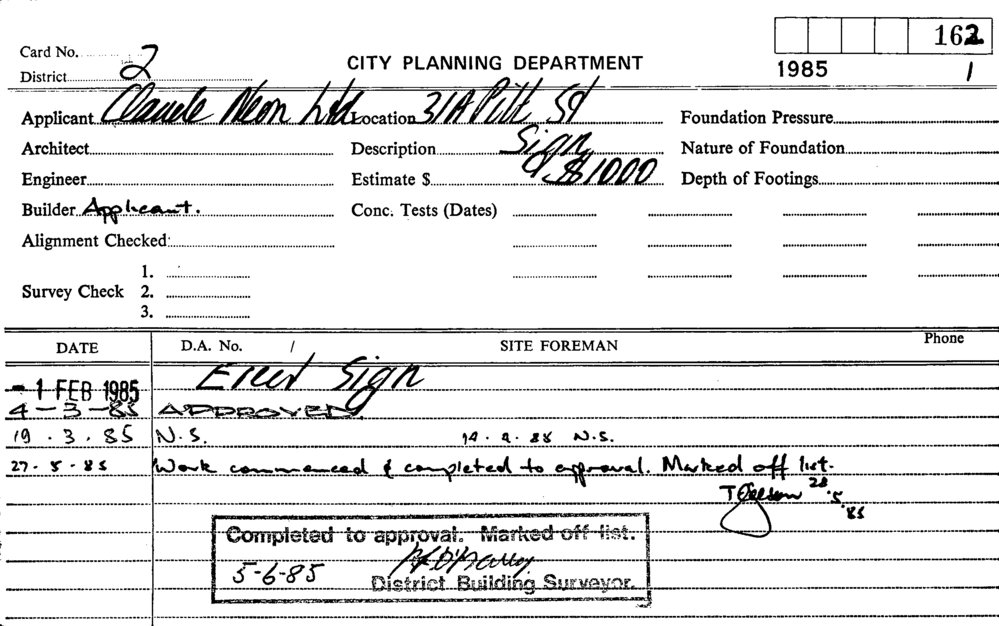 Card No.
162
CITY PLANNING DEPARTMENT
1985 1
District 2
Applicant Claude Neon Ltd Location 31A Pitt St Foundation Pressure
Architect Description Sign Nature of Foundation
Engineer Estimate $ $1000 Depth of Footings
Builder Applicant. Conc. Tests (Dates)
Alignment Checked:
1.
Survey Check 2.
3.
DATE D.A. No. / SITE FOREMAN Phone
- 1 FEB 1985 Erect Sign
4 - 3 - 85 APPROVED
19 . 3 . 85 N.S. N.S.
27 - 5 - 85 Work commenced & completed to approval. Marked off list.
28 . 5 . 85
Completed to approval. Marked off list.
5-6-85
District Building Surveyor.